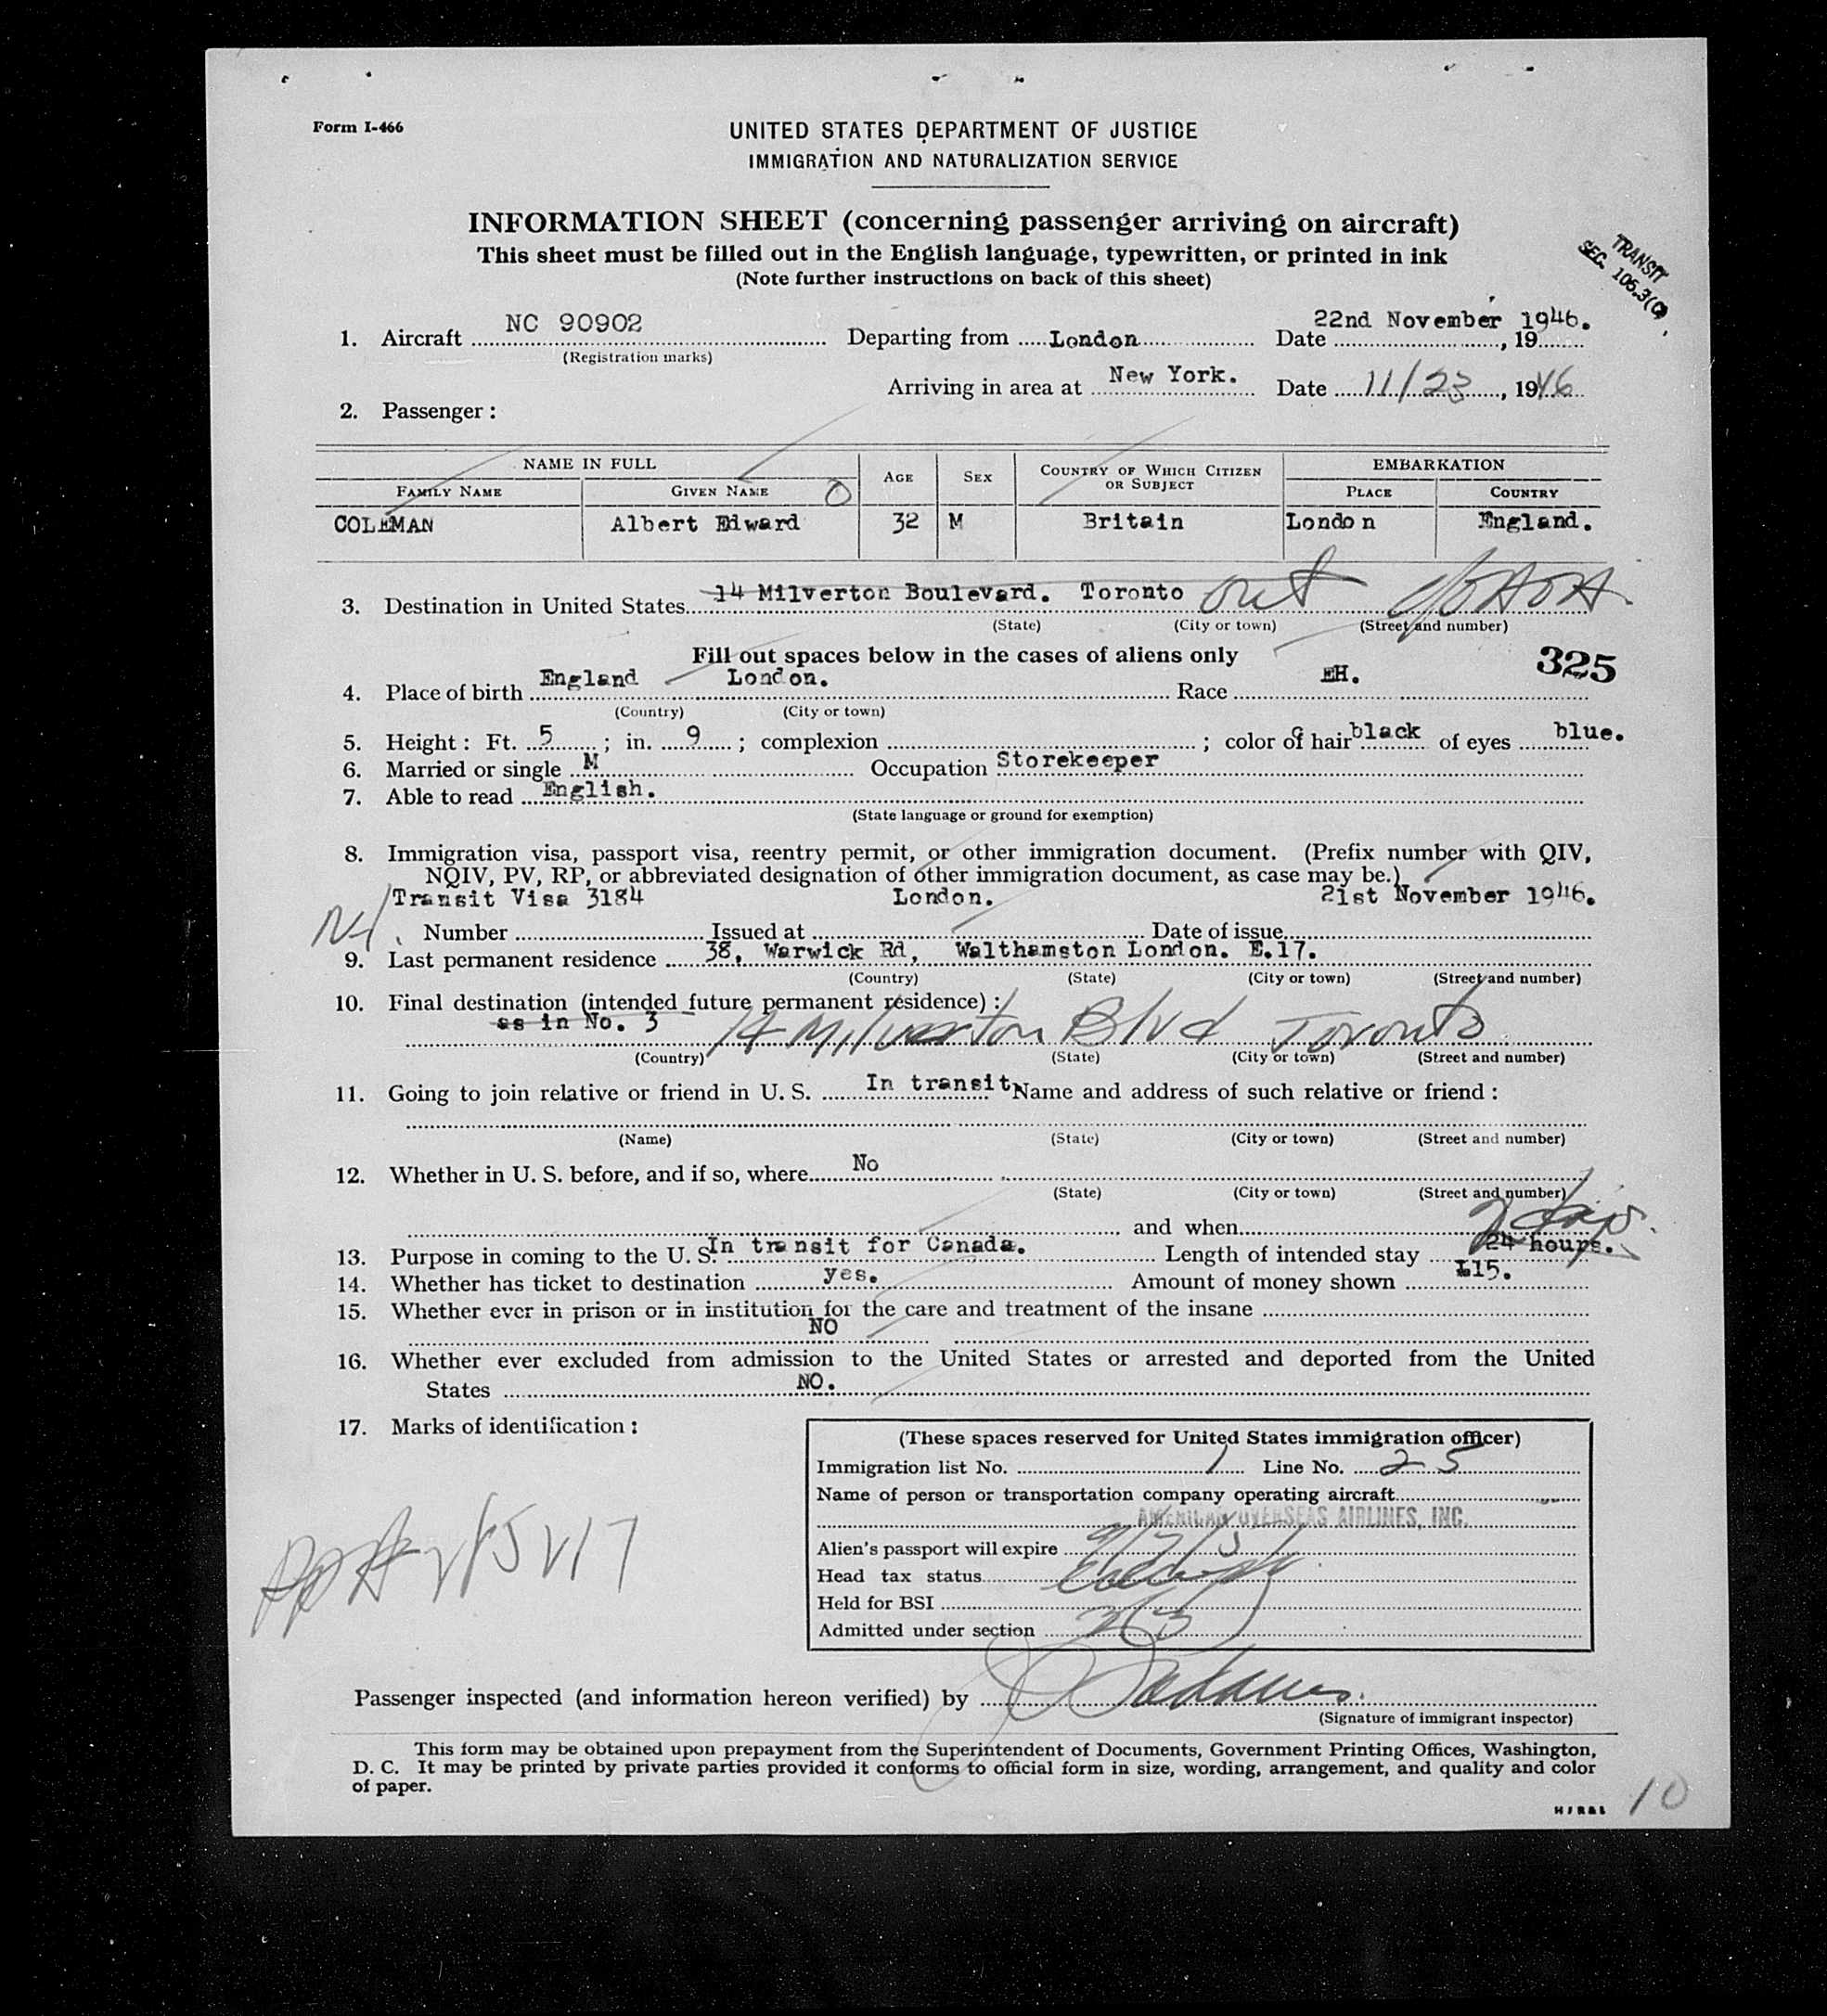 Form I-466
UNITED STATES DEPARTMENT OF JUSTICE
IMMIGRATION AND NATURALIZATION SERVICE
INFORMATION SHEET (concerning passenger arriving on aircraft)
This sheet must be filled out in the English language, typewritten, or printed in ink
(Note further instructions on back of this sheet)
TRANSIT
SEC. 105.3(C)
1. Aircraft NC 90902 Departing from London Date 22nd November 1946. , 19
(Registration marks)
Arriving in area at New York. Date 11/23, 1946
2. Passenger:
NAME IN FULL AGE SEX COUNTRY OF WHICH CITIZEN OR SUBJECT EMBARKATION
FAMILY NAME GIVEN NAME PLACE COUNTRY
COLEMAN Albert Edward 32 M Britain London England.
3. Destination in United States 14 Milverton Boulevard. Toronto out
(State) (City or town) (Street and number)
Fill out spaces below in the cases of aliens only
325
4. Place of birth England London. Race EH.
(Country) (City or town)
5. Height: Ft. 5; in. 9; complexion ; color of hair black of eyes blue.
6. Married or single M Occupation Storekeeper
7. Able to read English.
(State language or ground for exemption)
8. Immigration visa, passport visa, reentry permit, or other immigration document. (Prefix number with QIV,
NQIV, PV, RP, or abbreviated designation of other immigration document, as case may be.)
Transit Visa 3184 London. 21st November 1946.
Number Issued at Date of issue
9. Last permanent residence 38, Warwick Rd, Walthamston London. E.17.
(Country) (State) (City or town) (Street and number)
10. Final destination (intended future permanent residence):
as in No. 3 14 Milverton Blvd Toronto
(Country) (State) (City or town) (Street and number)
11. Going to join relative or friend in U. S. In transit Name and address of such relative or friend:
(Name) (State) (City or town) (Street and number)
12. Whether in U. S. before, and if so, where No
(State) (City or town) (Street and number)
and when
2 days.
13. Purpose in coming to the U. S. In transit for Canada. Length of intended stay 24 hours.
14. Whether has ticket to destination yes. Amount of money shown £15.
15. Whether ever in prison or in institution for the care and treatment of the insane
NO
16. Whether ever excluded from admission to the United States or arrested and deported from the United
States NO.
17. Marks of identification:
(These spaces reserved for United States immigration officer)
Immigration list No. 1 Line No. 25
Name of person or transportation company operating aircraft
AMERICAN OVERSEAS AIRLINES, INC.
Alien's passport will expire
Head tax status
Held for BSI
Admitted under section 3(3)
Passenger inspected (and information hereon verified) by
(Signature of immigrant inspector)
This form may be obtained upon prepayment from the Superintendent of Documents, Government Printing Offices, Washington,
D. C. It may be printed by private parties provided it conforms to official form in size, wording, arrangement, and quality and color
of paper.
10